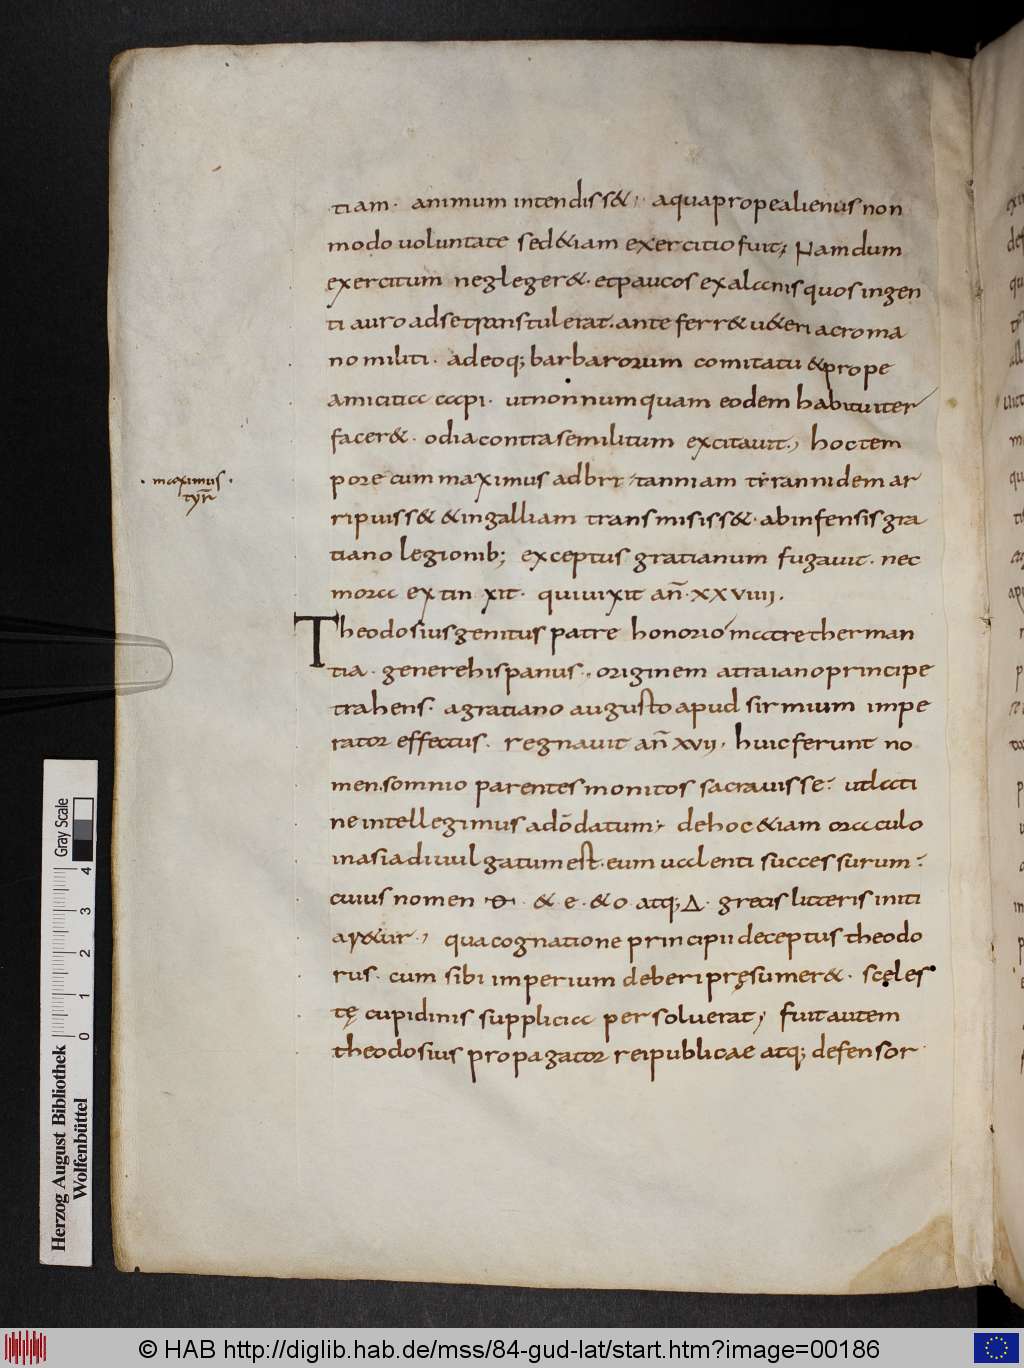 tiam· animum intendiss&; a quaprope alienus non
modo uoluntate sed&iam exercitio fuit; Nam dum
exercitum negleger&· et paucos ex alanis quos ingen
ti auro ad se transtulerat· anteferr& u&eri ac roma
no militi· adeoq; barbarorum comitatu & prope
amicitia capi· ut nonnumquam eodem habitu iter
facer&· odia contra se militum excitauit; hoc tem
pore cum maximus ad brittanniam tyrannidem ar
· maximus ·
tyrñ
ripuiss& & in galliam transmisiss&· ab infensis gra
tiano legionib; exceptus gratianum fugauit· nec
mora extinxit· qui uixit añ· xxviiii.
Theodosius genitus patre honorio matre therman
tia· genere hispanus· originem a traiano principe
trahens· a gratiano augusto apud sirmium impe
rator effectus· regnauit añ xvii· huic ferunt no
men somnio parentes monitos sacrauisse· ut lati
ne intellegimus a dō datum; de hoc &iam oraculo
in asia diuulgatum est· eum ualenti successurum·
cuius nomen Θ· & e· & o· atq; Δ· grecis litteris initi
ar&ur; qua cognatione principii deceptus theodo
rus· cum sibi imperium deberi pręsumer&· sceles
tę cupidinis supplicia persoluerat; fuit autem
theodosius propagator reipublicae atq; defensor
Herzog August Bibliothek
Wolfenbüttel
0 1 2 3 4
Gray Scale
© HAB http://diglib.hab.de/mss/84-gud-lat/start.htm?image=00186